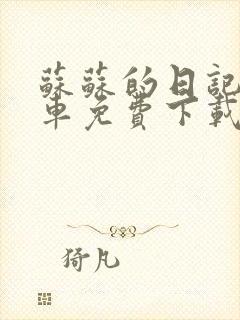 蘇蘇的日記
車免費下載
猗凡